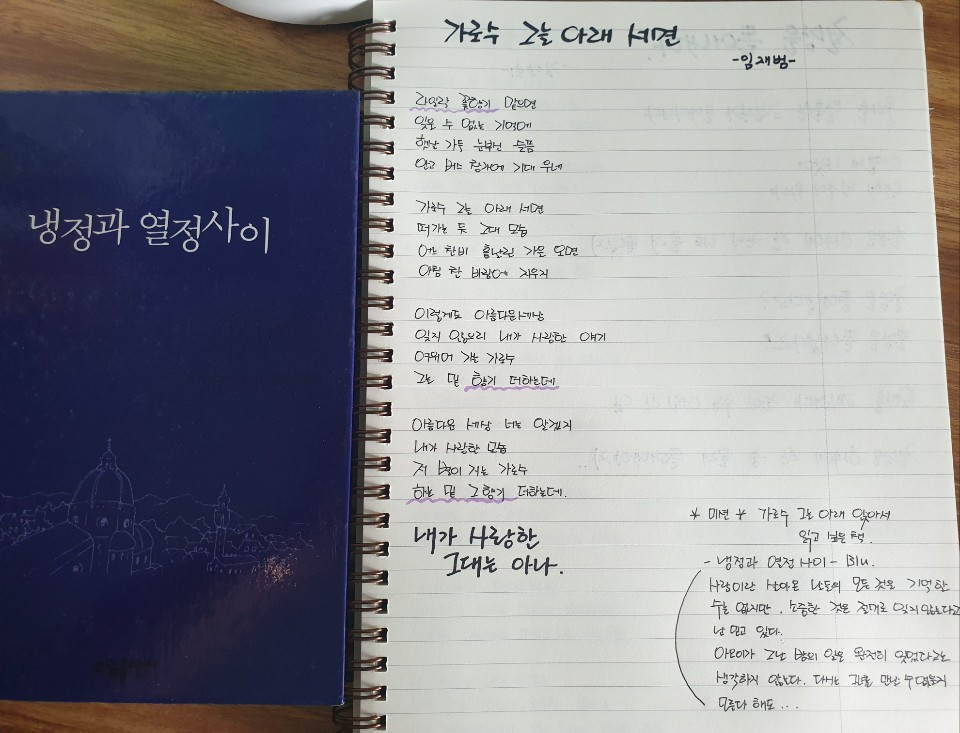 냉정과 열정사이
가로수 그늘 아래 서면
-임재범-
라일락 꽃향기 맡으면
잊을 수 없는 기억에
햇살 가득 눈부신 슬픔
안고 버스 창가에 기대 우네
가로수 그늘 아래 서면
떠가는 듯 그대 모습
어느 찬비 흩날린 가을 오면
아침 찬 바람에 지우지
이렇게도 아름다운세상
잊지 않으리 내가 사랑한 얘기
여위어 가는 가로수
그늘 밑 향기 더하는데
아름다운 세상 너는 알았지
내가 사랑한 모습
저 별이 지는 가로수
하늘 밑 그 향기 더하는데.
내가 사랑한
그대는 아나.
* 미션 * 가로수 그늘 아래 앉아서
읽고 싶은 책.
- 냉정과 열정 사이 - Blu.
사람이란 살아온 날들의 모든 것을 기억할
수는 없지만, 소중한 것은 절대로 잊지 않는다고
난 믿고 있다.
아오이가 그날 밤의 일을 완전히 잊었다고는
생각하지 않는다. 다시는 그녀를 만날 수 없을지
모른다 해도...